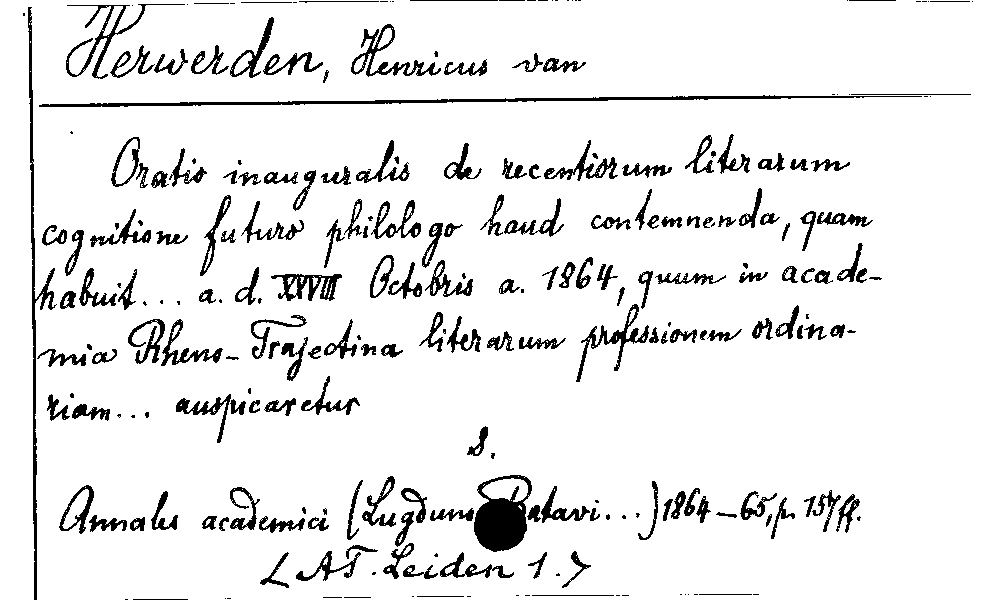 Herwerden, Henricus van
Oratio inauguralis de recentiorum literarum
cognitione futuro philologo haud contemnenda, quam
habuit... a. d. XXVIII Octobris a. 1864, quum in acade-
mia Rheno-Trajectina literarum professionem ordina-
riam... auspicaretur
S.
Annales academici (Lugduno Batavi...) 1864-65, p. 157ff.
<AT. Leiden 1.>